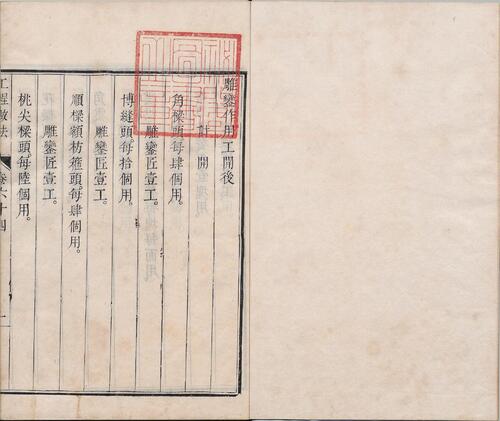 雕鑾作用工開後
計開
角樑頭每肆個用。
雕鑾匠壹工。
博縫頭每拾個用。
雕鑾匠壹工。
順樑額枋箍頭每肆個用。
雕鑾匠壹工。
桃尖樑頭每陸個用。
工程做法
卷六十四
一